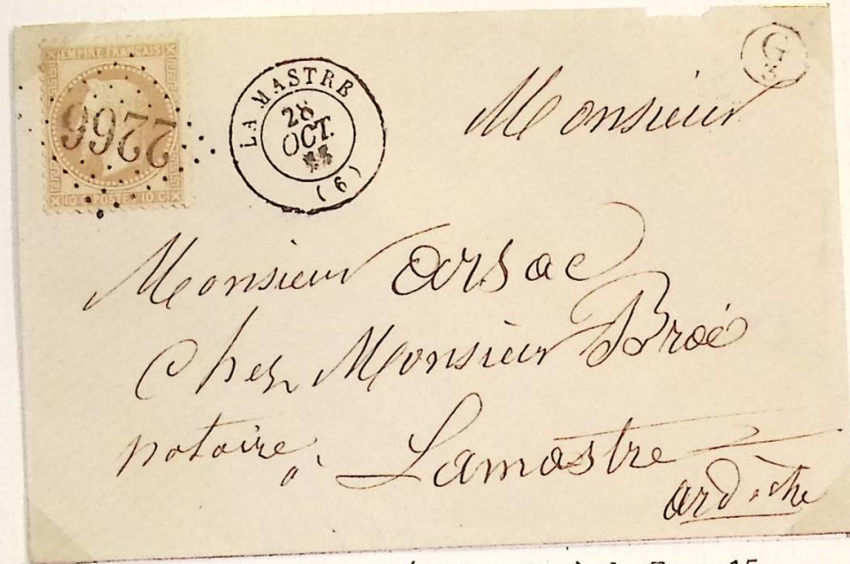 EMPIRE FRANÇAIS
2266
10 C POSTE 10 C
LA MASTRE
28
OCT.
(6)
G
Monsieur
Monsieur Arsac
Chez Monsieur Broé
notaire à Lamastre
ardèche